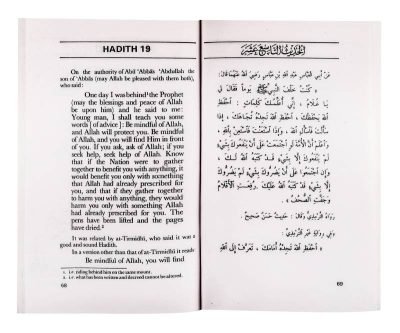 HADITH 19
On the authority of Abū 'Abbās 'Abdullah the
son of 'Abbās (may Allah be pleased with them both),
who said:
One day I was behind¹ the Prophet
(may the blessings and peace of Allah
be upon him) and he said to me:
Young man, I shall teach you some
words [of advice]: Be mindful of Allah,
and Allah will protect you. Be mindful
of Allah, and you will find Him in front
of you. If you ask, ask of Allah; if you
seek help, seek help of Allah. Know
that if the Nation were to gather
together to benefit you with anything, it
would benefit you only with something
that Allah had already prescribed for
you, and that if they gather together
to harm you with anything, they would
harm you only with something Allah
had already prescribed for you. The
pens have been lifted and the pages
have dried.²
It was related by at-Tirmidhī, who said it was a
good and sound Hadith.
In a version other than that of at-Tirmidhī it reads:
Be mindful of Allah, you will find
1. i.e. riding behind him on the same mount.
2. i.e. what has been written and decreed cannot be altered.
68
الحديث التاسع عشر
عَنْ أَبِي العَبَّاسِ عَبْدِ اللهِ بْنِ عَبَّاسٍ رَضِيَ اللهُ عَنْهُمَا قَالَ :
« كُنْتُ خَلْفَ النَّبِيِّ ﷺ يَوْماً فَقَالَ لِي
يَا غُلَامُ ، إِنِّي أُعَلِّمُكَ كَلِمَاتٍ : احْفَظِ
اللهَ يَحْفَظْكَ ، احْفَظِ اللهَ تَجِدْهُ تُجَاهَكَ ، إِذَا
سَأَلْتَ فَاسْأَلِ اللهَ ، وَإِذَا اسْتَعَنْتَ فَاسْتَعِنْ بِاللهِ ،
وَاعْلَمْ أَنَّ الأُمَّةَ لَوِ اجْتَمَعَتْ عَلَى أَنْ يَنْفَعُوكَ بِشَيْءٍ
لَمْ يَنْفَعُوكَ إِلَّا بِشَيْءٍ قَدْ كَتَبَهُ اللهُ لَكَ ،
وَإِنِ اجْتَمَعُوا عَلَى أَنْ يَضُرُّوكَ بِشَيْءٍ لَمْ يَضُرُّوكَ
إِلَّا بِشَيْءٍ قَدْ كَتَبَهُ اللهُ عَلَيْكَ . رُفِعَتِ الأَقْلَامُ
وَجَفَّتِ الصُّحُفُ » .
رَوَاهُ التِّرْمِذِيُّ وَقَالَ : حَدِيثٌ حَسَنٌ صَحِيحٌ .
وَفِي رِوَايَةِ غَيْرِ التِّرْمِذِيِّ :
« احْفَظِ اللهَ تَجِدْهُ أَمَامَكَ ، تَعَرَّفْ إِلَى اللهِ
69